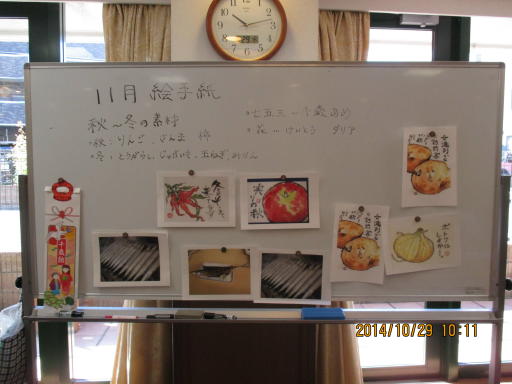 11月 絵手紙
秋～冬の素材
・秋：りんご、さんま 柿
・冬：とうがらし、じゃがいも、玉ねぎ、みかん
・七五三 … 千歳あめ
・花 … けいとう ダリア
実りの秋
千歳飴
29
2014/10/29 10:11